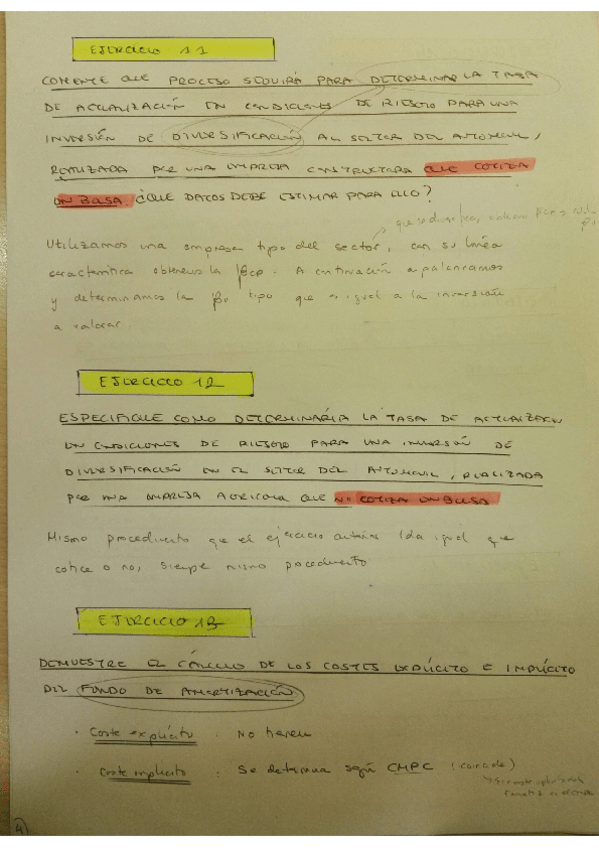 EJERCICIO 11
COMENTE QUE PROCESO SEGUIRÁ PARA DETERMINAR LA TASA
DE ACTUALIZACIÓN EN CONDICIONES DE RIESGO PARA UNA
INVERSIÓN DE DIVERSIFICACIÓN AL SECTOR DEL AUTOMOVIL,
REALIZADA POR UNA EMPRESA CONSTRUCTORA QUE COTIZA
EN BOLSA. ¿QUE DATOS DEBE ESTIMAR PARA ELLO?
Utilizamos una empresa tipo del sector, con su línea
característica obtenemos la βcp. A continuación apalancamos
y determinamos la βv tipo que es igual a la inversión
a valorar
EJERCICIO 12
ESPECIFIQUE COMO DETERMINARÍA LA TASA DE ACTUALIZACIÓN
EN CONDICIONES DE RIESGO PARA UNA INVERSIÓN DE
DIVERSIFICACIÓN EN EL SECTOR DEL AUTOMOVIL, REALIZADA
POR UNA EMPRESA AGRICOLA QUE NO COTIZA EN BOLSA
Mismo procedimiento que el ejercicio anterior (da igual que
cotice o no, siempre mismo procedimiento
EJERCICIO 13
DEMUESTRE EL CÁLCULO DE LOS COSTES EXPLÍCITO E IMPLÍCITO
DEL FONDO DE AMORTIZACIÓN
· Coste explícito: No tienen
· Coste implícito: Se determina según CMPC (coincide)
4)